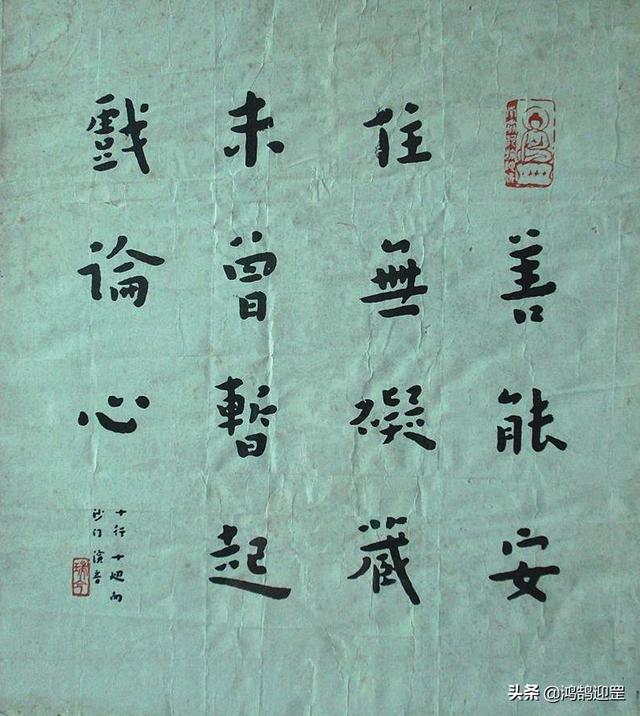 善能安
住無礙藏
未曾暫起
戲論心
十行十迴向
沙门演音
头条 @鸿鹄迎罡